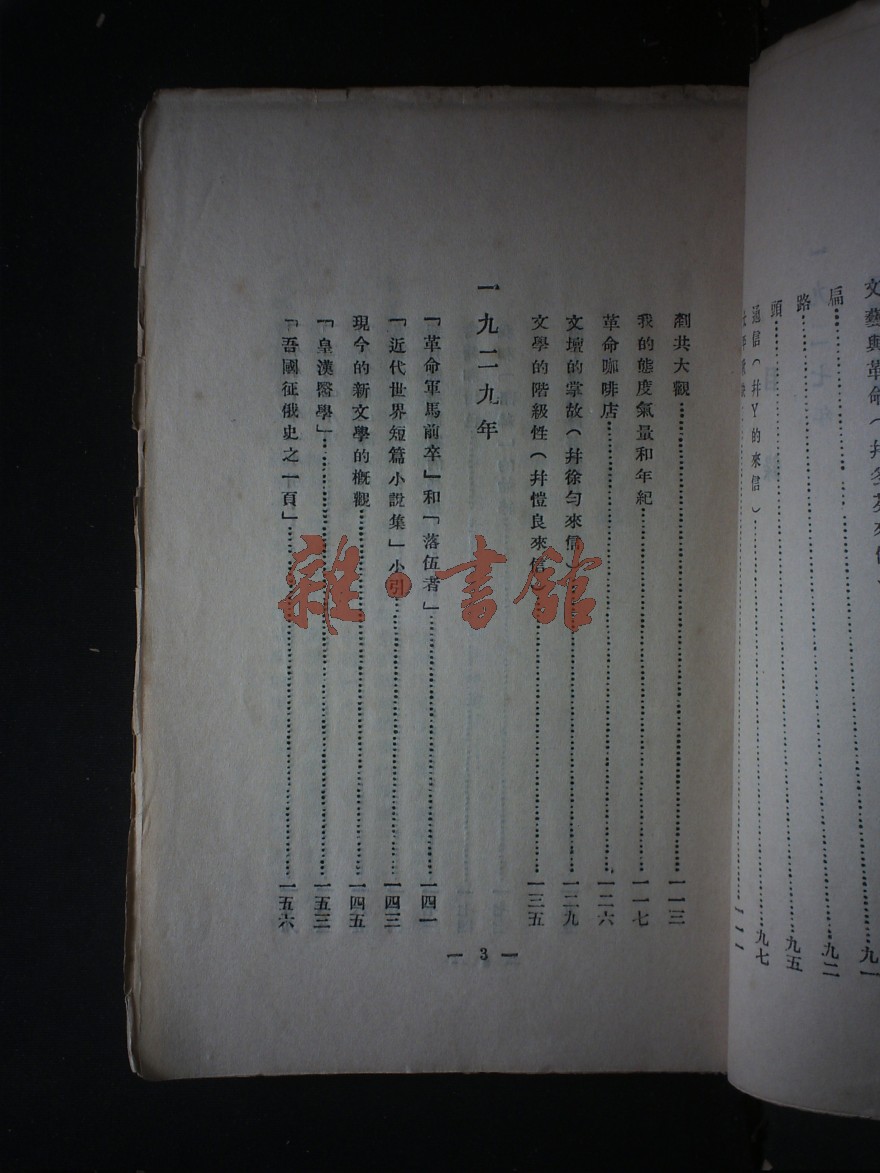 文藝與革命（幷冬芬來信）……九一
扁……九二
路……九五
頭……
通信（幷Y的來信）……九七
剷共大觀……一一三
我的態度氣量和年紀……一一七
革命咖啡店……一二六
文壇的掌故（幷徐匀來信）……一二九
文學的階級性（幷愷良來信）……一三五
一九二九年
「革命軍馬前卒」和「落伍者」……一四一
「近代世界短篇小說集」小引……一四三
現今的新文學的槪觀……一四五
「皇漢醫學」……一五三
「吾國征俄史之一頁」……一五六
— 3 —
雜·書館